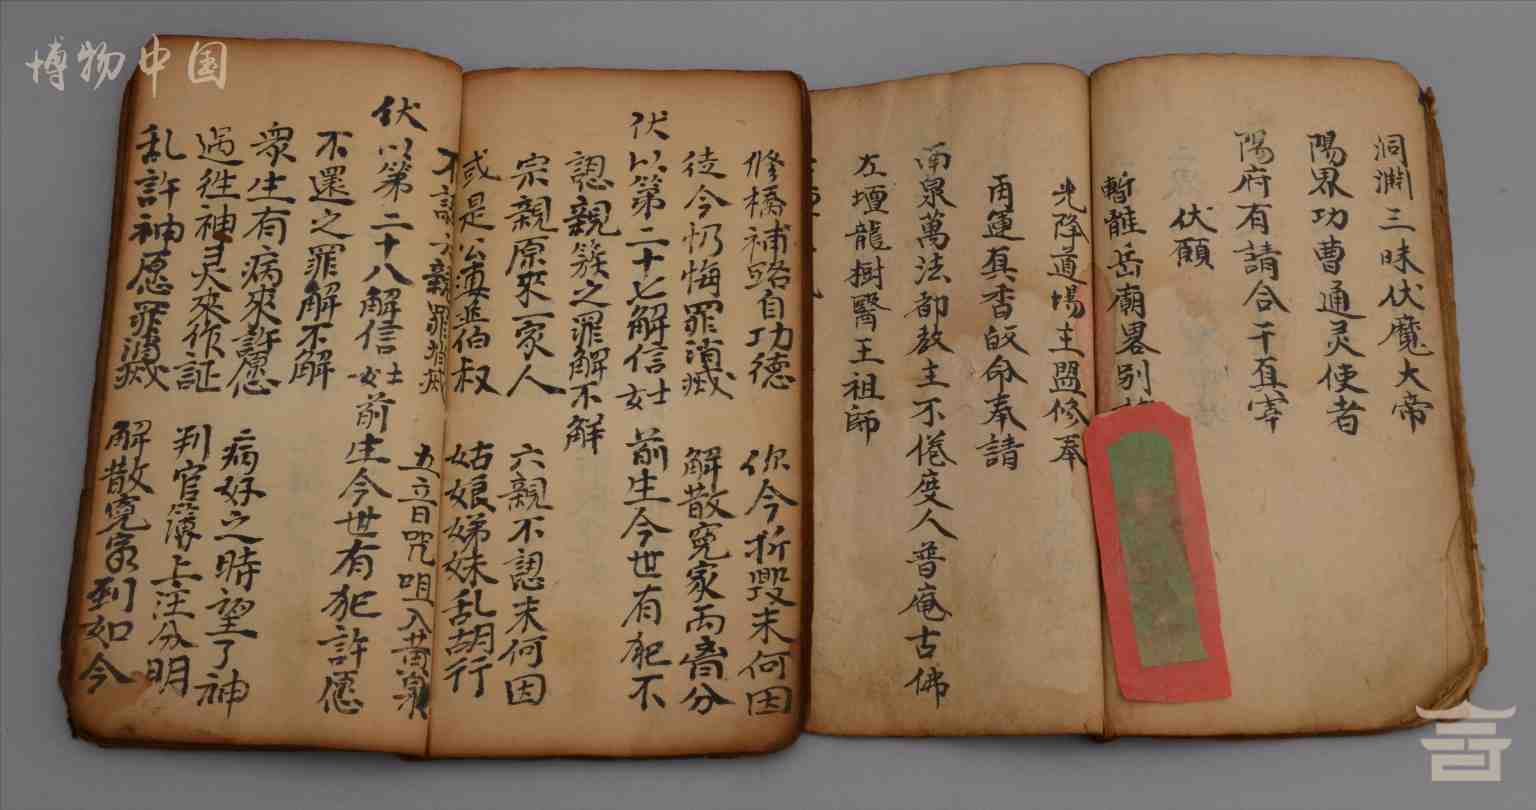 博物中国
洞淵三昧伏魔大帝
陽界功曹通灵使者
陽府有請合干真宰
伏願
暫離岳廟畧別
光降道場主盟修奉
再運真香皈命奉請
南泉萬法都教主不倦度人普庵古佛
左壇龍樹醫王祖師
修橋補路自功德 你今折毁末何因
徒今忏悔罪消滅 解散冤家两 分
伏以第二十七解信士女 前生今世有犯不
認親簇之罪解不解
宗親原來一家人 六親不認末何因
或是公 並伯叔 姑娘娣妹乱胡行
不 親罪消滅 五音咒咀入黄泉
伏以第二十八解信士女 前生今世有犯許愿
不還之罪解不解
衆生有病來許愿 病好之時望了神
過往神灵來作証 判官簿上注分明
乱許神愿罪消滅 解散冤家到如今